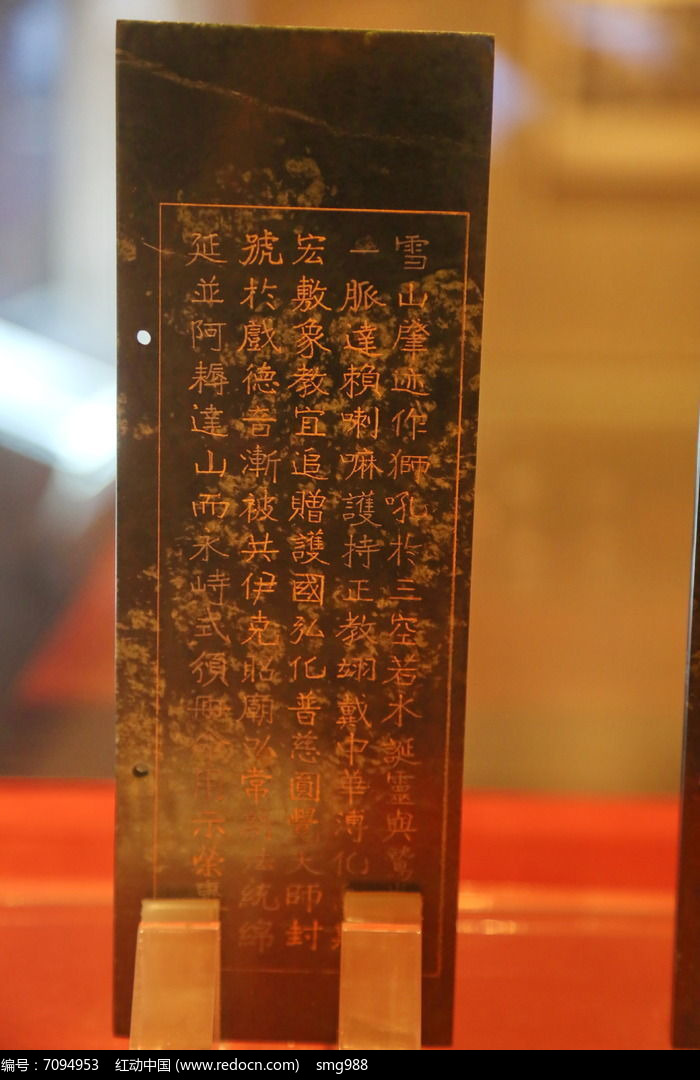 雪山肇迹作獅吼於三空若水誕靈與鷲
一脈達賴喇嘛護持正教翊戴中華溥化
宏敷象教宜追贈護國弘化普慈圓覺大師封
號於戲德音漸被共伊克昭廟以常 法統綿
延並阿耨達山而永峙式頒冊 用示榮
编号：7094953 红动中国 (www.redocn.com) smg988